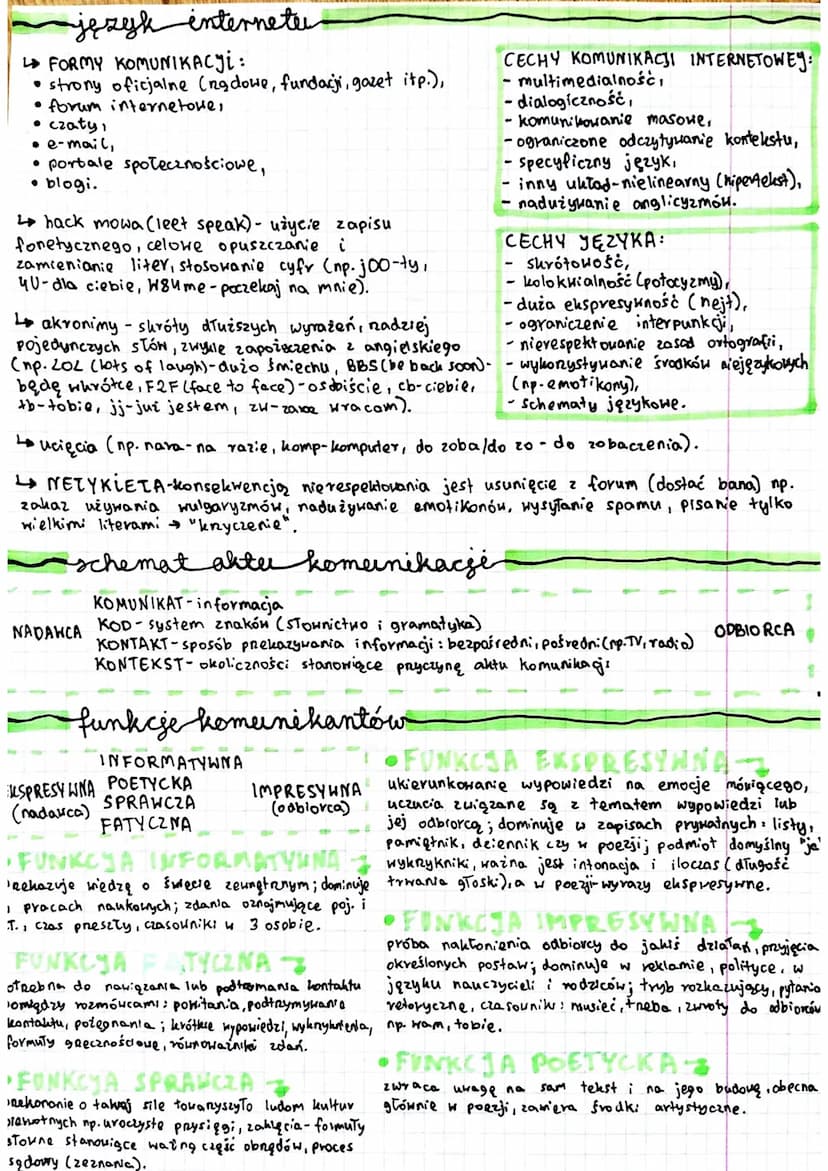 język internetu
↳ FORMY KOMUNIKACJI:
• strony oficjalne (rządowe, fundacji, gazet itp.),
• forum internetowe,
• czaty,
• e-mail,
• portale społecznościowe,
• blogi.
↳ hack mowa (leet speak) - użycie zapisu
fonetycznego, celowe opuszczanie i
zamienianie liter, stosowanie cyfr (np. j00-ty,
4U-dla ciebie, W84me-poczekaj na mnie).
↳ akronimy - skróty dłuższych wyrażeń, rzadziej
pojedynczych słów, zwykle zapożyczenia z angielskiego
(np. LOL (lots of laugh)-dużo śmiechu, BBS (be back soon)-
będę wkrótce, F2F (face to face)-osobiście, cb-ciebie,
tb-tobie, jj-już jestem, zw-zaraz wracam).
CECHY KOMUNIKACJI INTERNETOWEJ:
- multimedialność,
- dialogiczność,
- komunikowanie masowe,
- ograniczone odczytywanie kontekstu,
- specyficzny język,
- inny układ-nielinearny (hipertekst),
- nadużywanie anglicyzmów.
CECHY JĘZYKA:
- skrótowość,
- kolokwialność (potocyzmy),
- duża ekspresywność (nejt),
- ograniczenie interpunkcji,
- nierespektowanie zasad ortografii,
- wykorzystywanie środków niejęzykowych
(np. emotikony),
- schematy językowe.
↳ ucięcia (np. nara-na razie, komp-komputer, do zoba/do zo - do zobaczenia).
↳ NETYKIETA-konsekwencją nierespektowania jest usunięcie z forum (dostać bana) np.
zakaz używania wulgaryzmów, nadużywanie emotikonów, wysyłanie spamu, pisanie tylko
wielkimi literami → "krzyczenie".
schemat aktu komunikacji
KOMUNIKAT-informacja
NADAWCA KOD-system znaków (słownictwo i gramatyka) ODBIORCA
KONTAKT-sposób przekazywania informacji: bezpośredni, pośredni (np. TV, radio)
KONTEKST-okoliczności stanowiące przyczynę aktu komunikacji
funkcje komunikantów
INFORMATYWNA
EKSPRESYWNA POETYCKA IMPRESYWNA
(nadawca) SPRAWCZA (odbiorca)
FATYCZNA
• FUNKCJA INFORMATYWNA
przekazuje wiedzę o świecie zewnętrznym; dominuje
w pracach naukowych; zdania oznajmujące poj. i
zł., czas przeszły, czasowniki w 3 osobie.
FUNKCJA FATYCZNA
potrzebna do nawiązania lub podtrzymania kontaktu
pomiędzy rozmówcami: powitania, podtrzymywanie
kontaktu, pożegnania; krótkie wypowiedzi, wykrzyknienia,
formuły grzecznościowe, równoważniki zdań.
• FUNKCJA SPRAWCZA
przekonanie o takiej sile towarzyszyło ludom kultur
pierwotnych np. uroczyste przysięgi, zaklęcia-formuły
słowne stanowiące ważną część obrzędów, proces
sądowy (zeznania).
• FUNKCJA EKSPRESYWNA
ukierunkowanie wypowiedzi na emocje mówiącego,
uczucia związane są z tematem wypowiedzi lub
jej odbiorcą; dominuje w zapisach prywatnych: listy,
pamiętnik, dziennik czy w poezji; podmiot domyślny "ja"
wykrzyknik, ważna jest intonacja i iloczas (długość
trwania głoski), a w poezji-wyrazy ekspresywne.
• FUNKCJA IMPRESYWNA
próba nakłonienia odbiorcy do jakiś działań, przyjęcia
określonych postaw; dominuje w reklamie, polityce, w
języku nauczycieli i rodziców; tryb rozkazujący, pytania
retoryczne, czasowniki: musieć, trzeba, zwroty do odbiorców
np. wam, tobie.
• FUNKCJA POETYCKA
zwraca uwagę na sam tekst i na jego budowę, obecna
głównie w poezji, zawiera środki artystyczne.